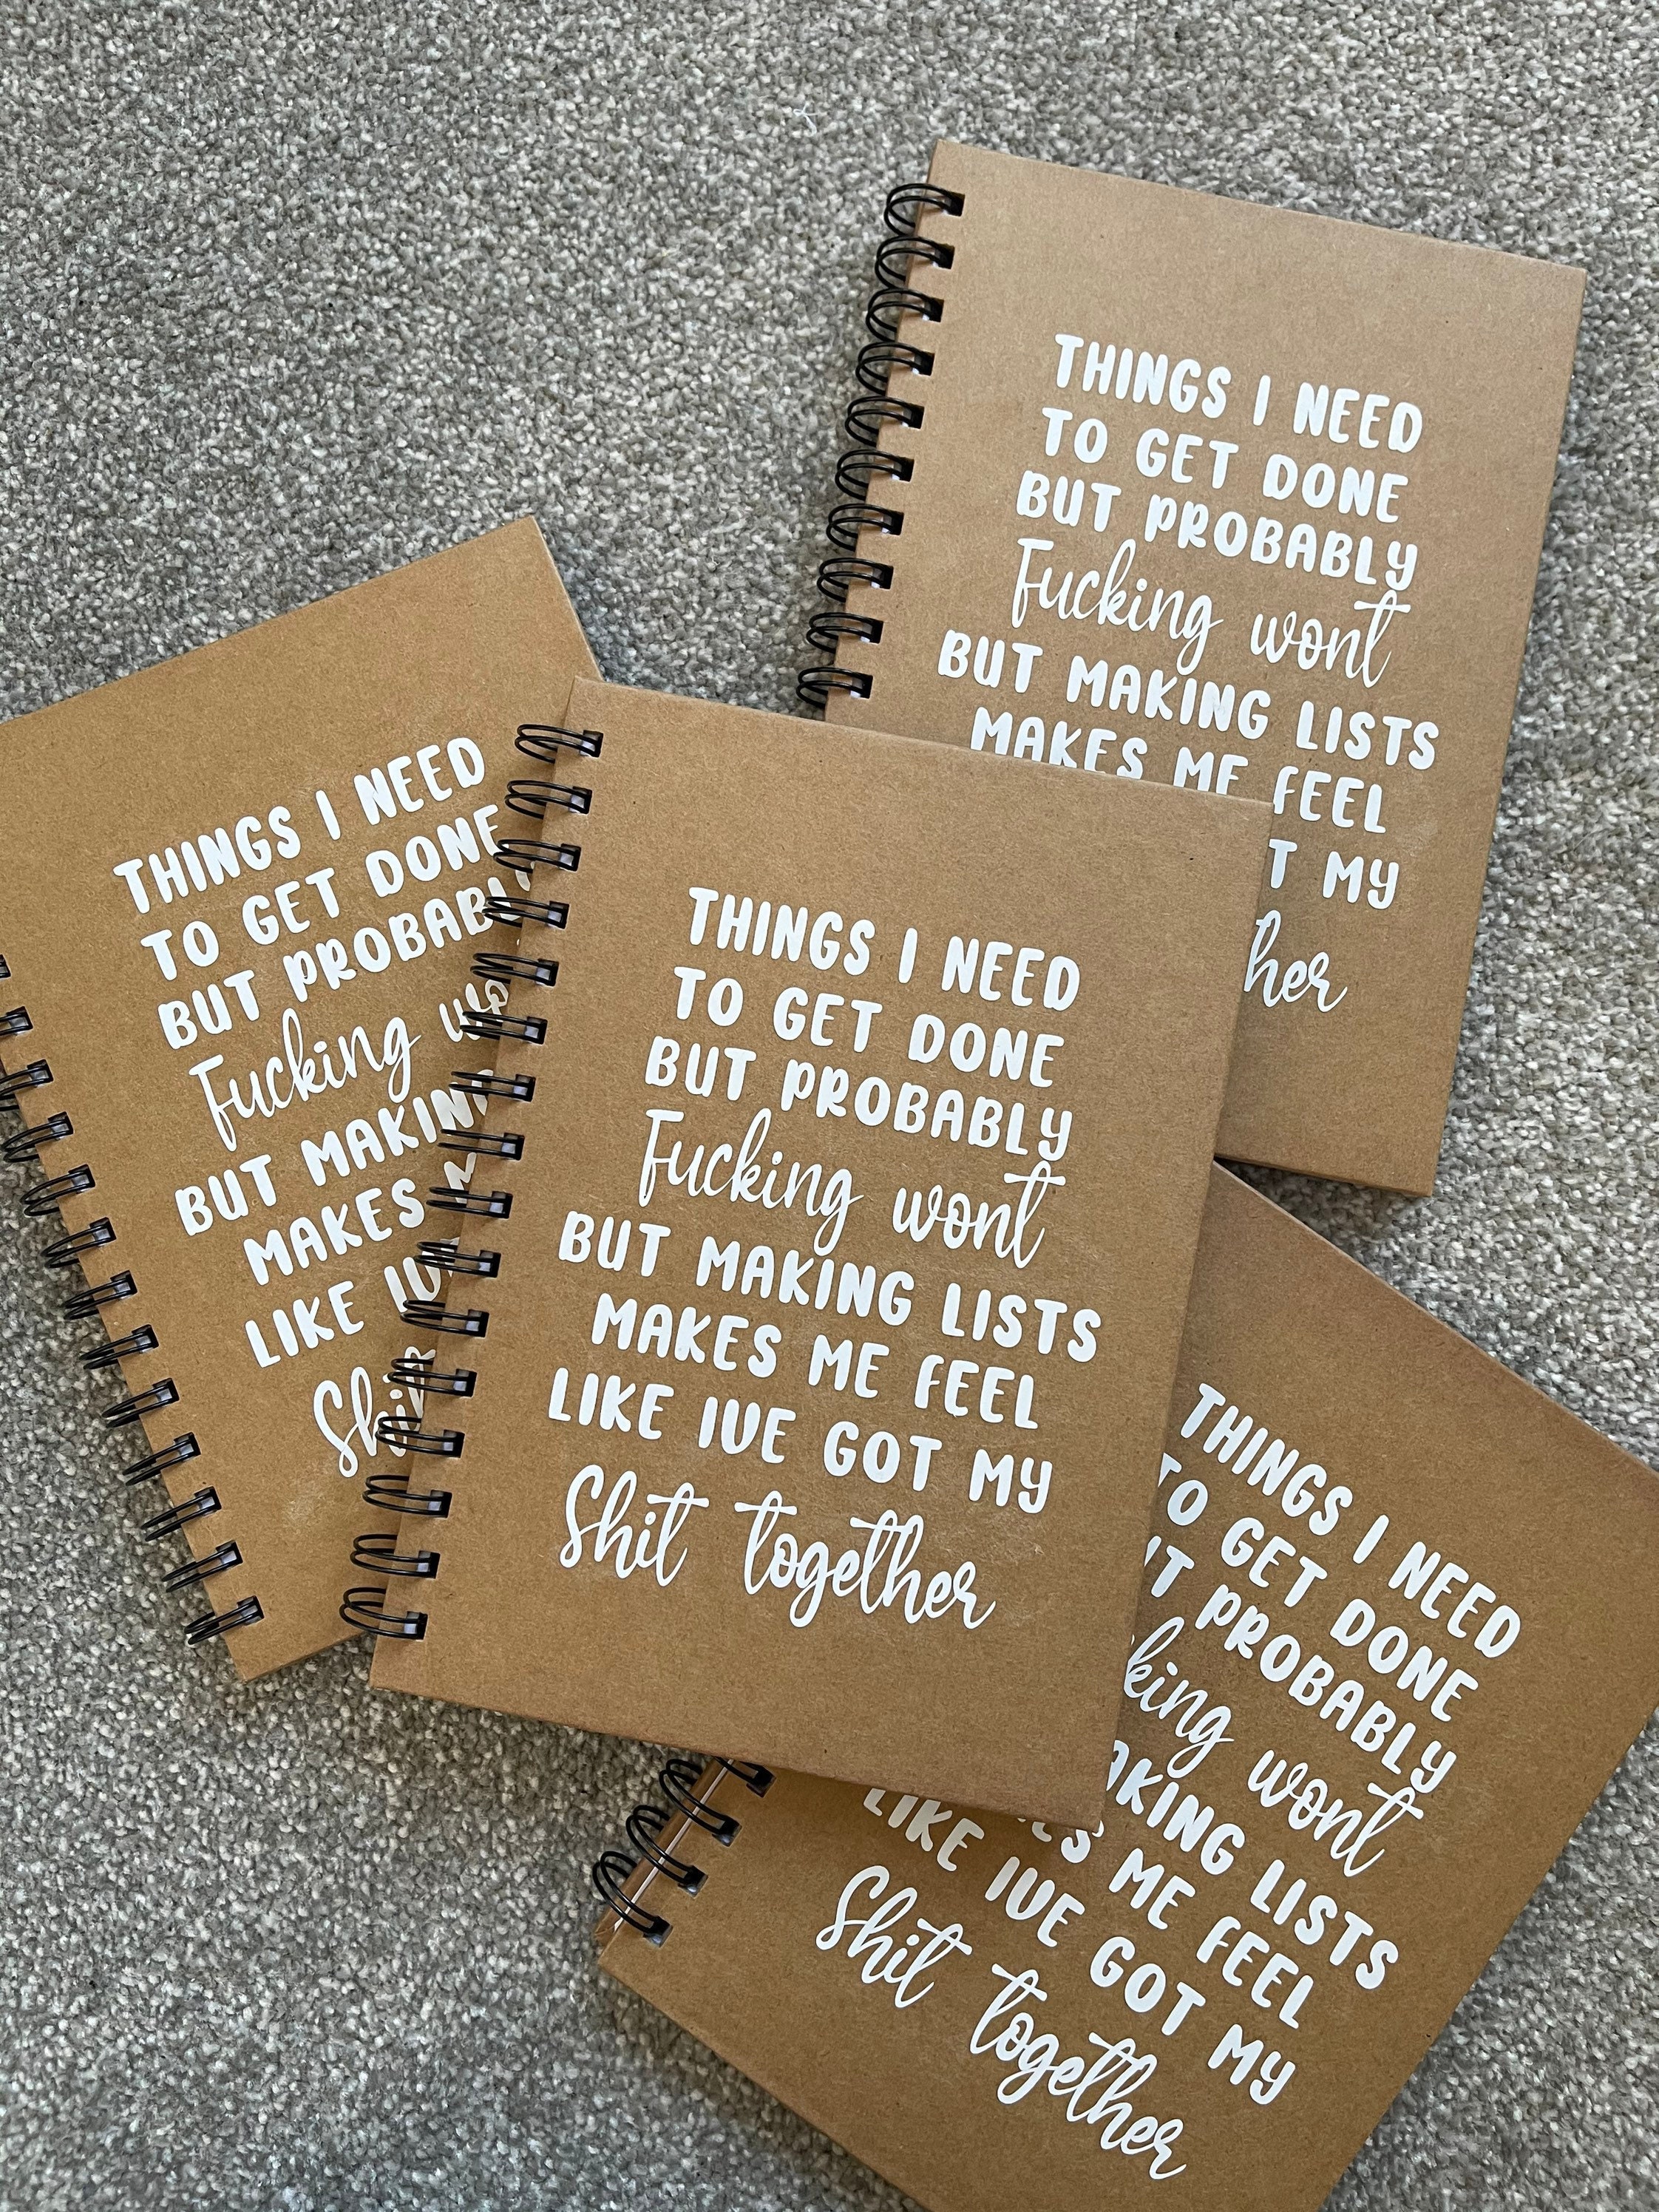 THINGS I NEED
TO GET DONE
BUT PROBABLY
Fucking wont
BUT MAKING LISTS
MAKES ME FEEL
T MY
her
THINGS I NEED
TO GET DONE
BUT PROBABLY
Fucking
BUT MAKING
MAKES
LIKE IVE
Shit
THINGS I NEED
TO GET DONE
BUT PROBABLY
Fucking wont
BUT MAKING LISTS
MAKES ME FEEL
LIKE IVE GOT MY
Shit together
THINGS I NEED
TO GET DONE
UT PROBABLY
king wont
AKING LISTS
ES ME FEEL
LIKE IVE GOT MY
Shit together